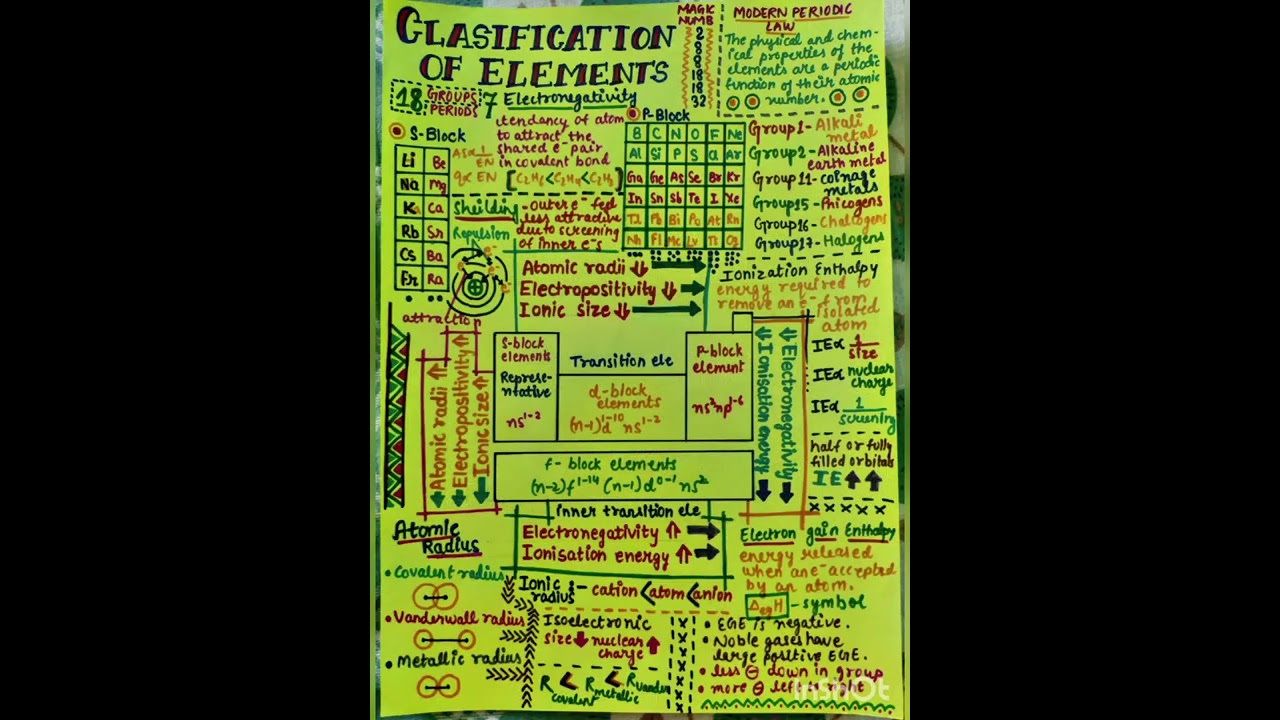 CLASIFICATION
OF ELEMENTS
MAGIC
NUMB
2
8
8
18
18
32
MODERN PERIODIC
LAW
The physical and chem-
ical properties of the
elements are a periodic
function of their atomic
number.
18 GROUPS 7
PERIODS
Electronegativity
tendency of atom
to attract the
shared e⁻ pair
in covalent bond
[C₂H₆<C₂H₄<C₂H₂]
S-Block
Li Be
Na Mg
K Ca
Rb Sr
Cs Ba
Fr Ra
P-Block
B C N O F Ne
Al Si P S Cl Ar
Ga Ge As Se Br Kr
In Sn Sb Te I Xe
Tl Pb Bi Po At Rn
Nh Fl Mc Lv Ts Og
Group 1 - Alkali
metal
Group 2 - Alkaline
earth metal
Group 11 - coinage
metals
Group 15 - Pnicogens
Group 16 - Chalcogens
Group 17 - Halogens
Sheilding - outer e⁻ feel
less attractive
due to screening
of inner e⁻s
Repulsion
attraction
Atomic radii ⇓ →
Electropositivity ⇓ →
Ionic size ⇓ →
Ionization Enthalpy
energy required to
remove an e⁻ from
isolated
atom
IE∝ 1/size
IE∝ nuclear
charge
IE∝ 1/screening
half or fully
filled orbitals
IE ↑ ↑
Atomic radii ⇑
Electropositivity ⇑
Ionic size ⇑
S-block
elements
Represe-
ntative
ns¹⁻²
Transition ele
d-block
elements
(n-1)d¹⁻¹⁰ns¹⁻²
P-block
element
ns²np¹⁻⁶
⇓ Ionisation energy
⇓ Electronegativity
f-block elements
(n-2)f¹⁻¹⁴ (n-1)d⁰⁻¹ ns²
inner transition ele
Electronegativity ⇑ →
Ionisation energy ⇑ →
Atomic
Radius
• Covalent radius
• Vanderwall radius
• Metallic radius
Ionic
radius :- cation < atom < anion
Isoelectronic
size ↓ nuclear ↑
charge
R covalent < R metallic < R vander
Electron gain Enthalpy
energy released
when an e⁻ accepted
by an atom.
ΔegH - symbol
• EGE is negative.
• Noble gases have
large positive EGE.
• less ⊖ down in group
• more ⊖ left
InShOt